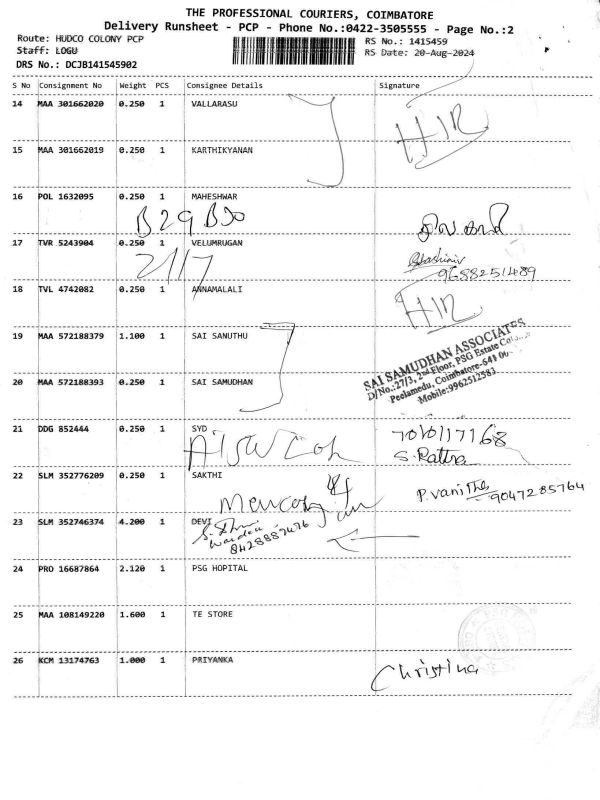 THE PROFESSIONAL COURIERS, COIMBATORE
Delivery Runsheet - PCP - Phone No.:0422-3505555 - Page No.:2
Route: HUDCO COLONY PCP
RS No.: 1415459
Staff: LOGU
RS Date: 20-Aug-2024
DRS No.: DCJB141545902
S No Consignment No Weight PCS Consignee Details Signature
14 MAA 301662020 0.250 1 VALLARASU
15 MAA 301662019 0.250 1 KARTHIKYANAN
16 POL 1632095 0.250 1 MAHESHWAR
B29 B30
17 TVR 5243904 0.250 1 VELUMRUGAN
9688251489
18 TVL 4742082 0.250 1 ANNAMALALI
19 MAA 572188379 1.100 1 SAI SANUTHU
SAI SAMUDHAN ASSOCIATES
D/No.:27/3, 2nd Floor, PSG Estate
Peelamedu, Coimbatore-641 00
Mobile:9962512583
20 MAA 572188393 0.250 1 SAI SAMUDHAN
21 DDG 852444 0.250 1 SYD
7010117168
S. Rattna
22 SLM 352776209 0.250 1 SAKTHI
P. Vanitha
9047285764
23 SLM 352746374 4.200 1 DEVI
8428887476
24 PRO 16687864 2.120 1 PSG HOPITAL
25 MAA 108149220 1.600 1 TE STORE
26 KCM 13174763 1.000 1 PRIYANKA
Christina